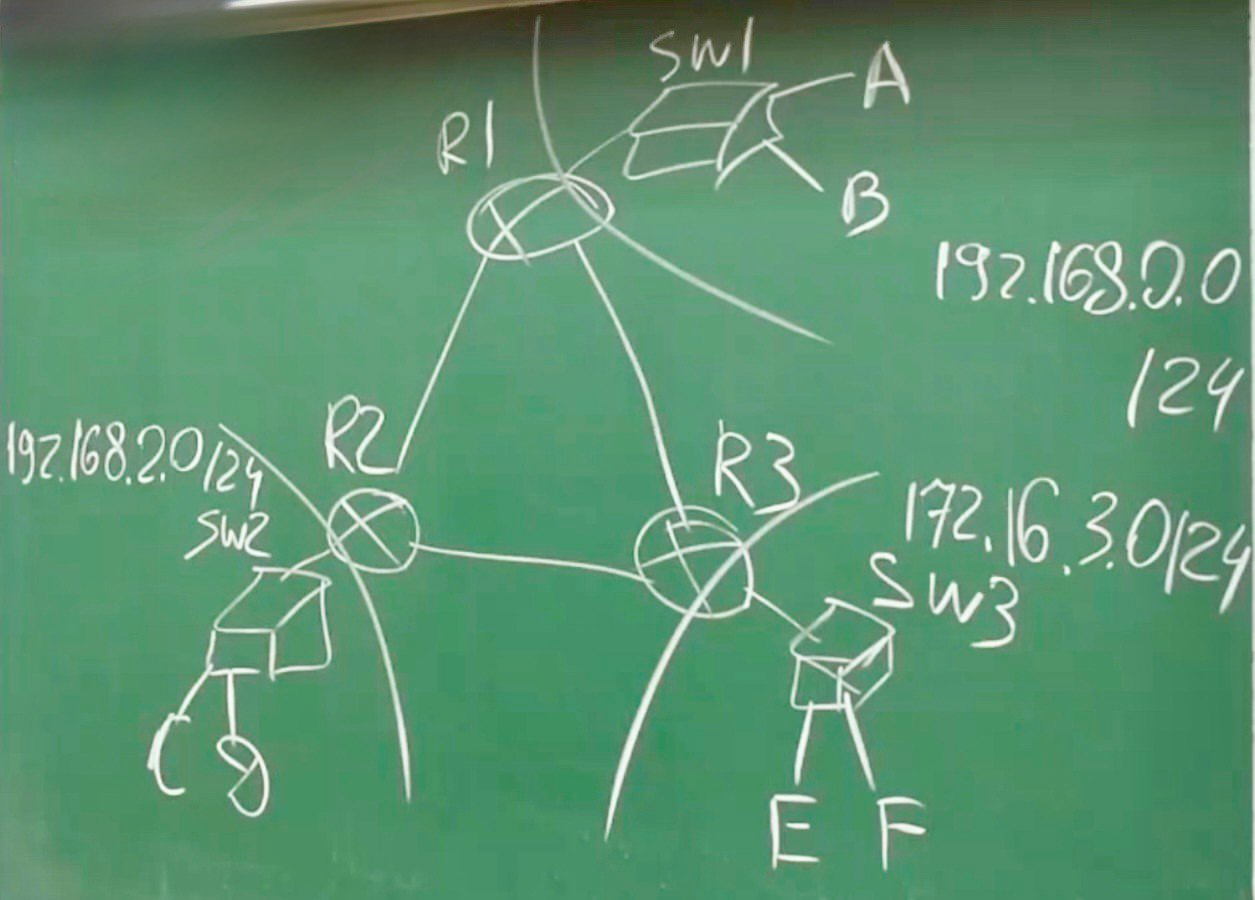 SW1
A
R1
B
192.168.0.0
/24
R2
192.168.2.0/24
R3
172.16.3.0/24
SW2
SW3
C
E F